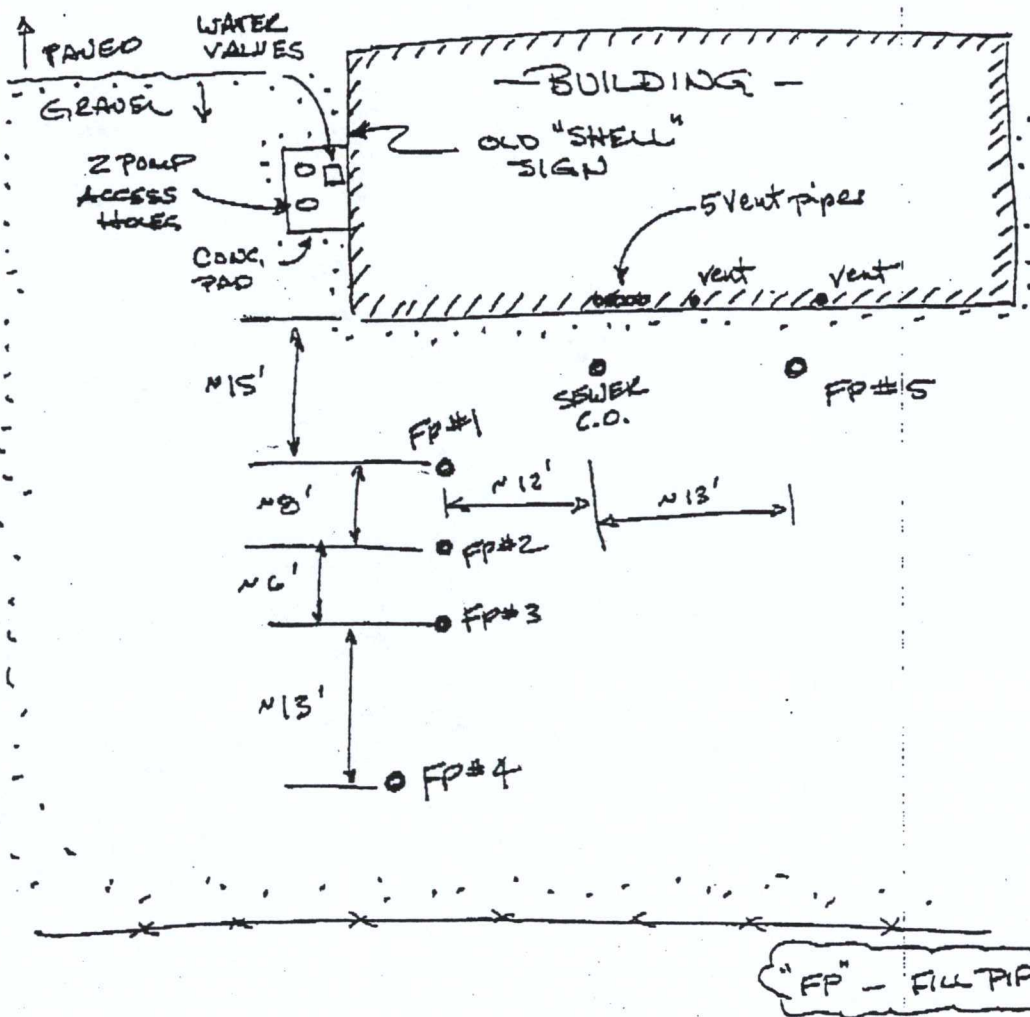 PAVED
WATER
VALVES
GRAVEL
2 PUMP
ACCESS
HOLES
CONC.
PAD
— BUILDING —
OLD "SHELL"
SIGN
5 Vent pipes
vent
vent
~15'
SEWER
C.O.
FP#5
FP#1
~12'
~13'
~8'
FP#2
~6'
FP#3
~13'
FP#4
"FP" — FILL PIP